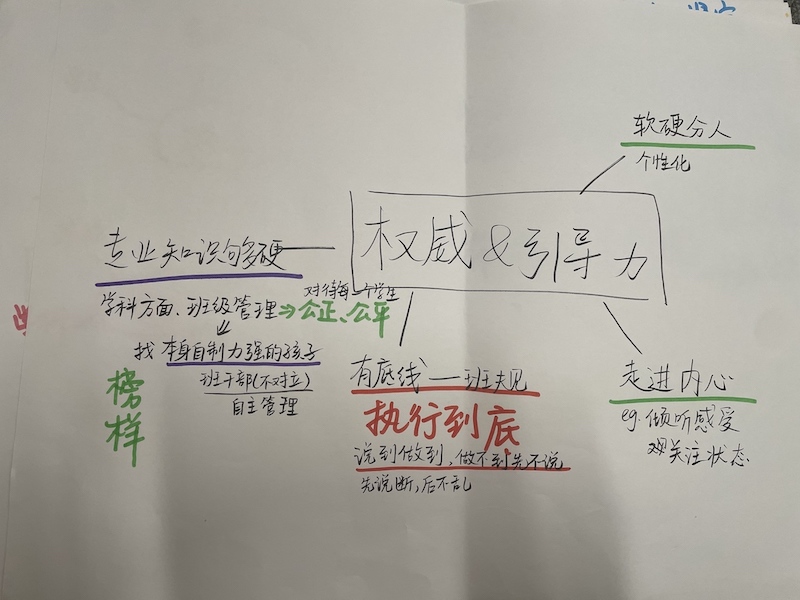 软硬分人
个性化
权威 & 引导力
专业知识够硬
学科方面、班级管理 ⇒ 公正、公平
对待每一个学生
找本身自制力强的孩子
班干部(不对立)
自主管理
榜样
有底线 — 班规
执行到底
说到做到,做不到先不说
先说断,后不乱
走进内心
eg. 倾听感受
关注状态